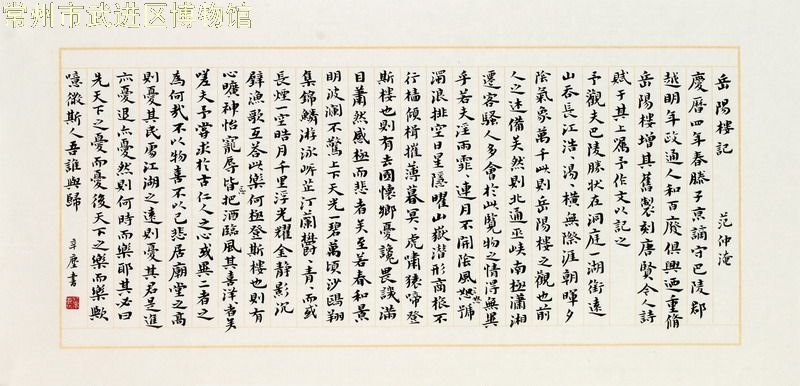 常州市武进区博物馆
岳陽樓記 范仲淹
慶曆四年春滕子京謫守巴陵郡
越明年政通人和百廢俱興迺重脩
岳陽樓增其舊製刻唐賢今人詩
賦于其上屬予作文以記之
予觀夫巴陵勝狀在洞庭一湖銜遠
山吞長江浩、湯、橫無際涯朝暉夕
陰氣象萬千此則岳陽樓之觀也前
人之述備矣然則北通巫峽南極瀟湘
遷客騷人多會於此覽物之情得無異
乎若夫淫雨霏、連月不開陰風怒號
濁浪排空日星隱曜山嶽潛形商旅不
行檣傾楫摧薄暮冥、虎嘯猿啼登
斯樓也則有去國懷鄉憂讒畏譏滿
目蕭然感極而悲者矣至若春和景
明波瀾不驚上下天光一碧萬頃沙鷗翔
集錦鱗游泳岸芷汀蘭鬱、青、而或
長煙一空皓月千里浮光耀金靜影沉
璧漁歌互荅此樂何極登斯樓也則有
心曠神怡寵辱皆忘把酒臨風其喜洋、者矣
嗟夫予嘗求於古仁人之心或異二者之
為何哉不以物喜不以己悲居廟堂之高
則憂其民處江湖之遠則憂其君是進
亦憂退亦憂然則何時而樂耶其必曰
先天下之憂而憂後天下之樂而樂歟
噫微斯人吾誰與歸 辛塵書